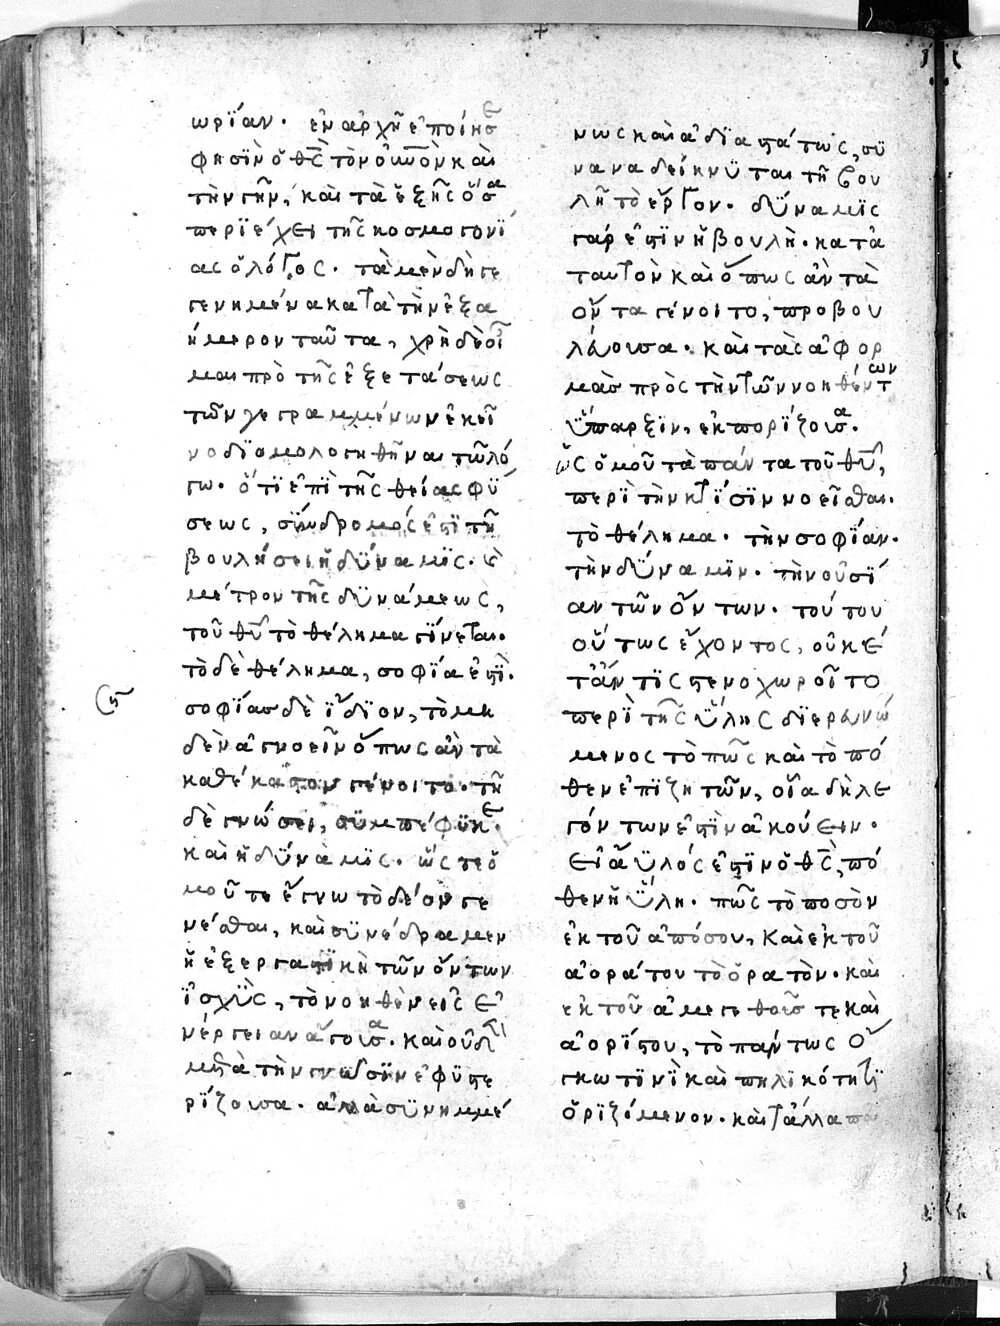 ωρίαν. ἐν ἀρχῆ ἐποίησε
φησὶν ὁ θς̅ τὸν οὐνον καὶ
τὴν γῆν, καὶ τὰ ἑξῆς ὅσα
περιέχει τῆς κοσμογονί
ας ὁ λόγος. τὰ μὲν δὴ γε
γενημένα κατὰ τὴν ἑξα
ήμερον ταῦτα, χρὴ δὲ οἶ
μαι πρὸ τῆς ἐξετάσεως
τῶν γεγραμμένων ἐκεῖ
νο διομολογηθῆναι τῶ λό
γω. ὅτι ἐπὶ τῆς θείας φύ
σεως, σύνδρομός ἐστι τῆ
βουλήσει ἡ δύναμις. καὶ
μέτρον τῆς δυνάμεως,
τοῦ θυ̅ τὸ θέλημα γίνεται.
τὸ δὲ θέλημα, σοφία ἐστὶ.
σοφίας δὲ ἴδιον, τὸ μη
δὲν ἀγνοεῖν ὅπως ἂν τὰ
καθέκαστον γένοιτο. τῆ
δὲ γνώσει, συμπέφυκε
καὶ ἡ δύναμις. ὥστε ὁ
μοῦ τε ἔγνω τὸ δέον γε
νέσθαι, καὶ συνέδραμεν
ἡ ἐξεργαστικὴ τῶν ὄντων
ἰσχὺς, τὸ νοηθὲν εἰς ἐ
νέργειαν ἄγουσα. καὶ οὐδὲν
μετὰ τὴν γνῶσιν ἐφυστε
ρίζουσα. ἀλλὰ συνημμέ
νως καὶ ἀδιαστάτως, συ
ναναδείκνυται τῆ βου
λῆ τὸ ἔργον. δύναμις
γάρ ἐστιν ἡ βουλὴ. κατὰ
ταυτὸν καὶ ὅπως ἂν τὰ
ὄντα γένοιτο, προβου
λεύουσα. καὶ τὰς ἀφορ
μὰς πρὸς τὴν τῶν νοηθέντων
ὕπαρξιν, ἐκπορίζουσα.
ὡς ὁμοῦ τὰ πάντα τοῦ θυ̅,
περὶ τὴν κτίσιν νοεῖσθαι.
τὸ θέλημα. τὴν σοφίαν.
τὴν δύναμιν. τὴν οὐσί
αν τῶν ὄντων. τούτου
οὕτως ἔχοντος, οὐκέ
τ᾽ ἄν τις στενοχωροῖτο
περὶ τῆς ὕλης διερωνώ
μενος τὸ πῶς καὶ τὸ πό
θεν ἐπιζητῶν, οἷα δὴ λε
γόντων ἐστὶν ἀκούειν.
εἰ ἄϋλός ἐστιν ὁ θς̅, πό
θεν ἡ ὕλη. πῶς τὸ ποσὸν
ἐκ τοῦ ἀπόσου, καὶ ἐκ τοῦ
ἀοράτου τὸ ὁρατὸν. καὶ
ἐκ τοῦ ἀμεγέθους τε καὶ
ἀορίστου, τὸ πάντως ὄ
γκω τινὶ καὶ πηλικότητι
ὁριζόμενον. καὶ τἄλλα